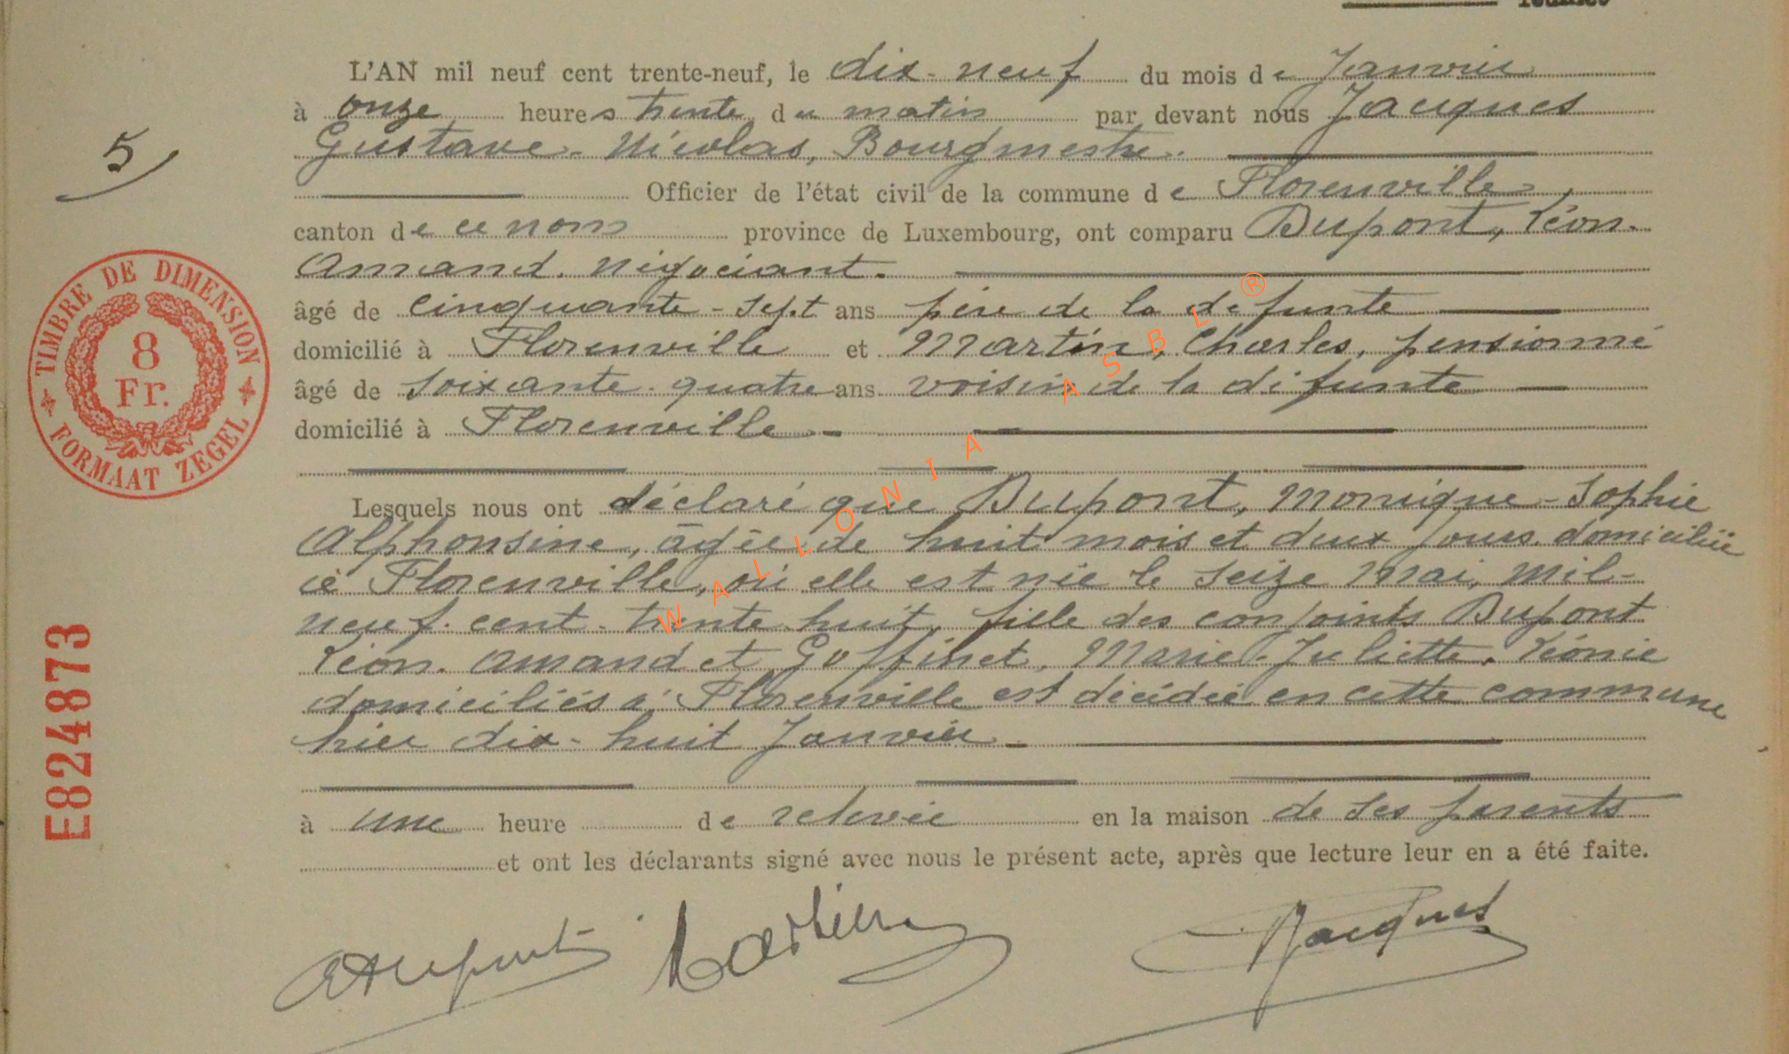 feuillet
L'AN mil neuf cent trente-neuf, le dix-neuf du mois de Janvier
à onze heures trente du matin par devant nous Jacques
Gustave-Nicolas, Bourgmestre.
Officier de l'état civil de la commune de Florenville,
canton de ce nom province de Luxembourg, ont comparu Dupont, Léon-
Amand. négociant.
âgé de cinquante-sept ans père de la défunte
domicilié à Florenville et Martin, Charles, pensionné
âgé de soixante-quatre ans voisin de la défunte
domicilié à Florenville
Lesquels nous ont déclaré que Dupont, Monique-Sophie
Alphonsine, âgée de huit mois et deux jours domiciliée
à Florenville, où elle est née le seize Mai, mil-
neuf-cent-trente huit, fille des conjoints Dupont
Léon-Amand et Goffinet, Marie-Juliette-Léonie
domiciliés à Florenville est décédée en cette commune
hier dix-huit Janvier
à une heure de relevée en la maison de ses parents
et ont les déclarants signé avec nous le présent acte, après que lecture leur en a été faite.
ADupont Martin Jacques
5
TIMBRE DE DIMENSION
8
Fr.
FORMAAT ZEGEL
E824873
WALLONIA ASBL ®